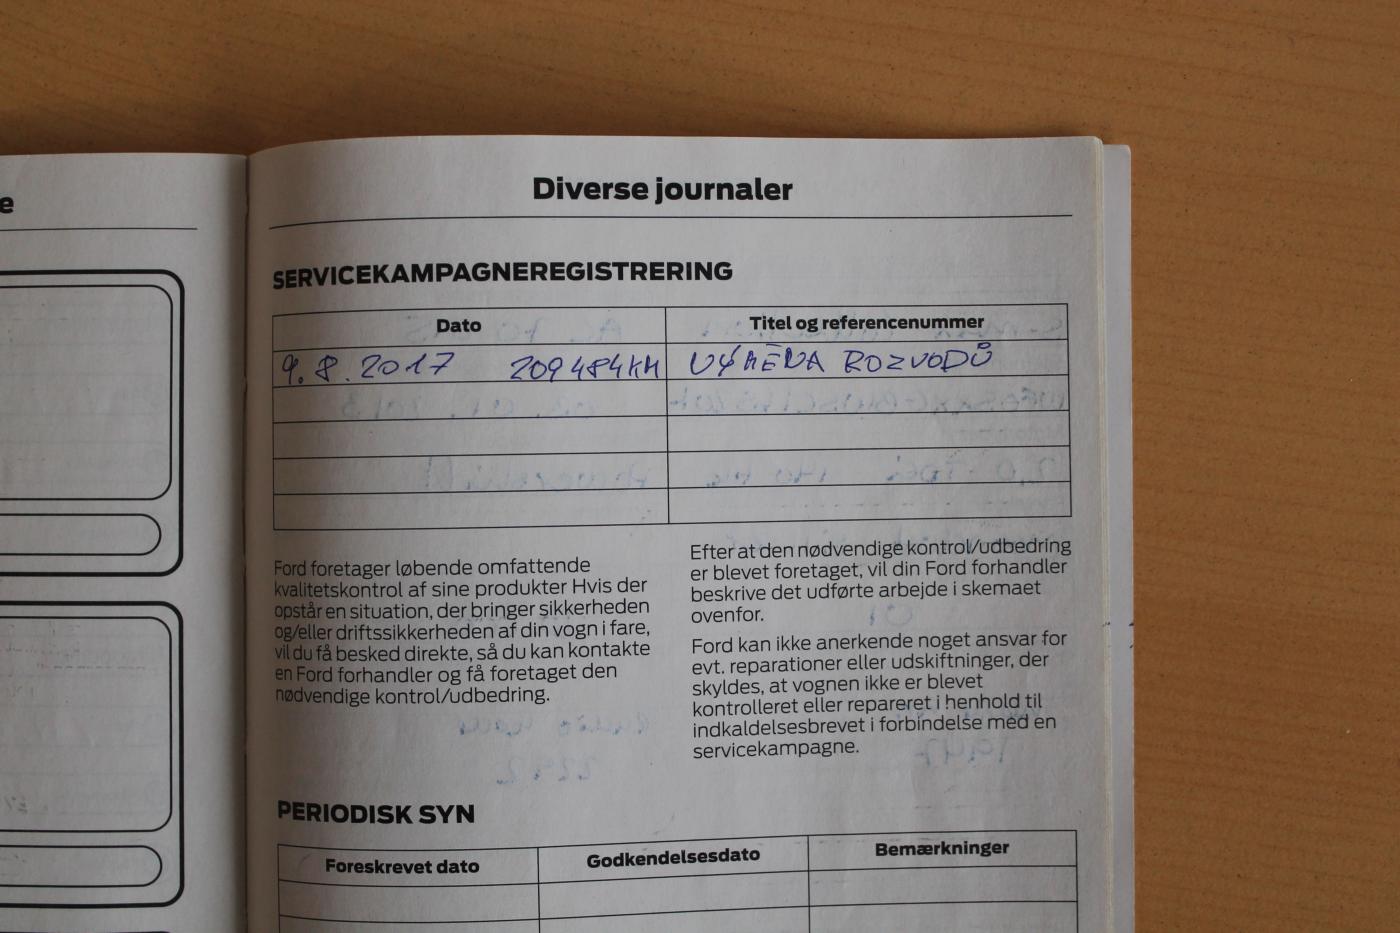 e
Diverse journaler
SERVICEKAMPAGNEREGISTRERING
Dato
Titel og referencenummer
9.8.2017 209484KM
VÝMĚNA ROZVODŮ
Ford foretager løbende omfattende
kvalitetskontrol af sine produkter Hvis der
opstår en situation, der bringer sikkerheden
og/eller driftssikkerheden af din vogn i fare,
vil du få besked direkte, så du kan kontakte
en Ford forhandler og få foretaget den
nødvendige kontrol/udbedring.
Efter at den nødvendige kontrol/udbedring
er blevet foretaget, vil din Ford forhandler
beskrive det udførte arbejde i skemaet
ovenfor.
Ford kan ikke anerkende noget ansvar for
evt. reparationer eller udskiftninger, der
skyldes, at vognen ikke er blevet
kontrolleret eller repareret i henhold til
indkaldelsesbrevet i forbindelse med en
servicekampagne.
PERIODISK SYN
Foreskrevet dato
Godkendelsesdato
Bemærkninger